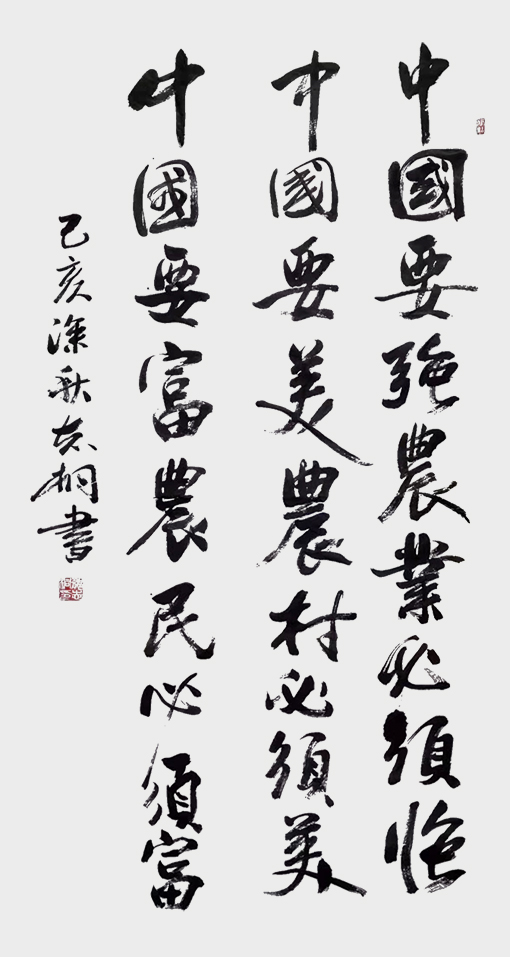 中國要強農業必須強
中國要美農村必須美
中國要富農民必須富
己亥深秋志桐書